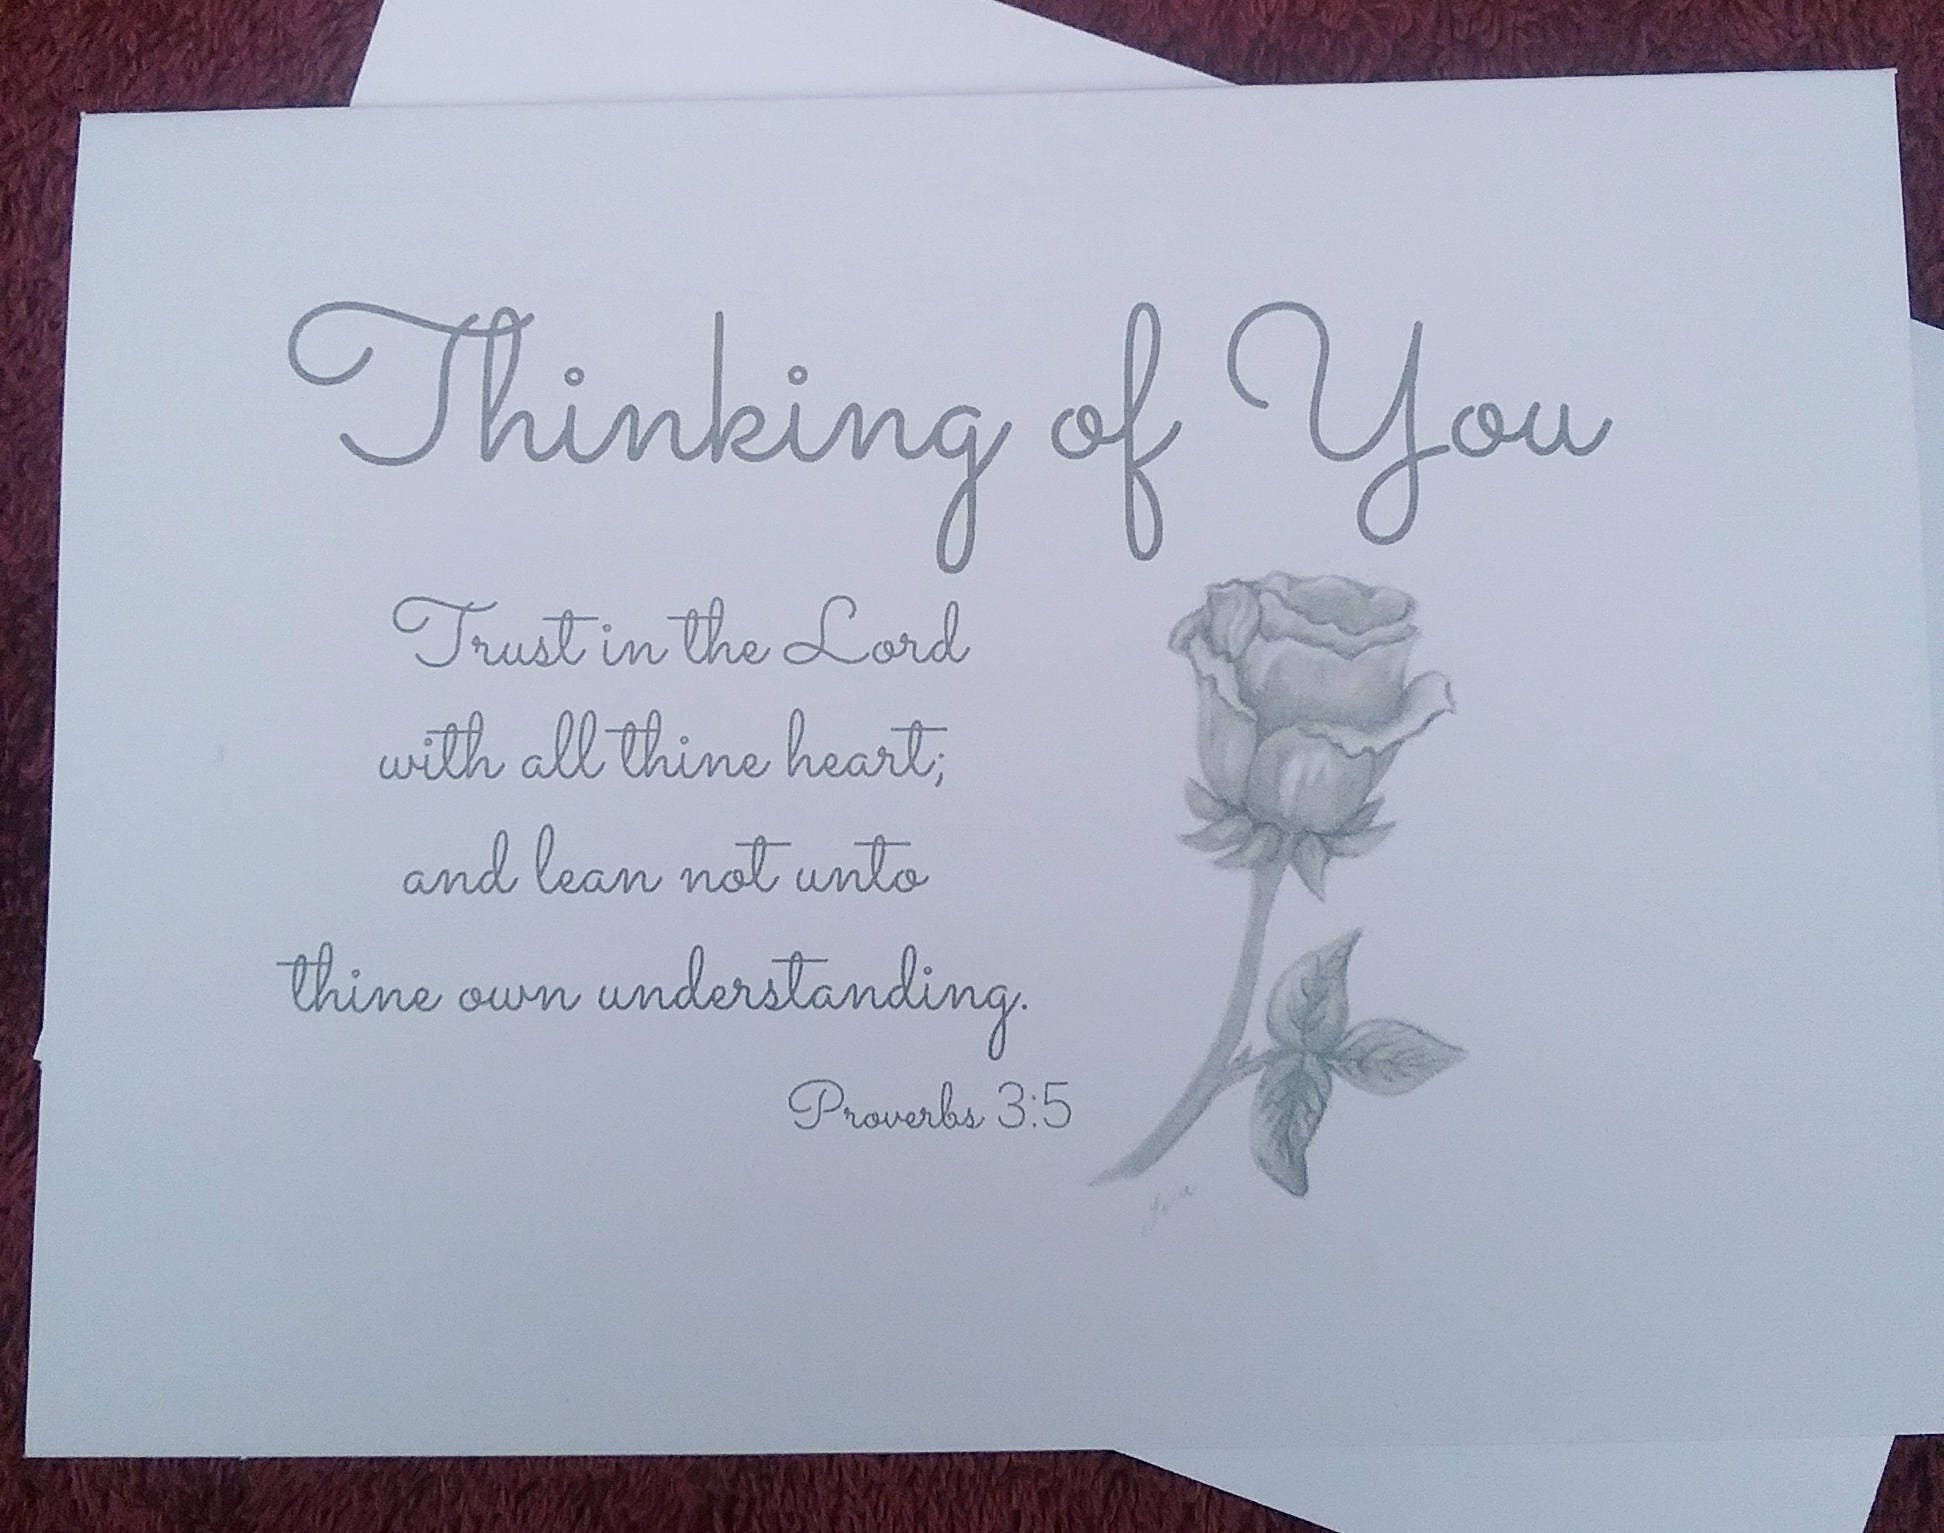 Thinking of You
Trust in the Lord
with all thine heart;
and lean not unto
thine own understanding.
Proverbs 3:5